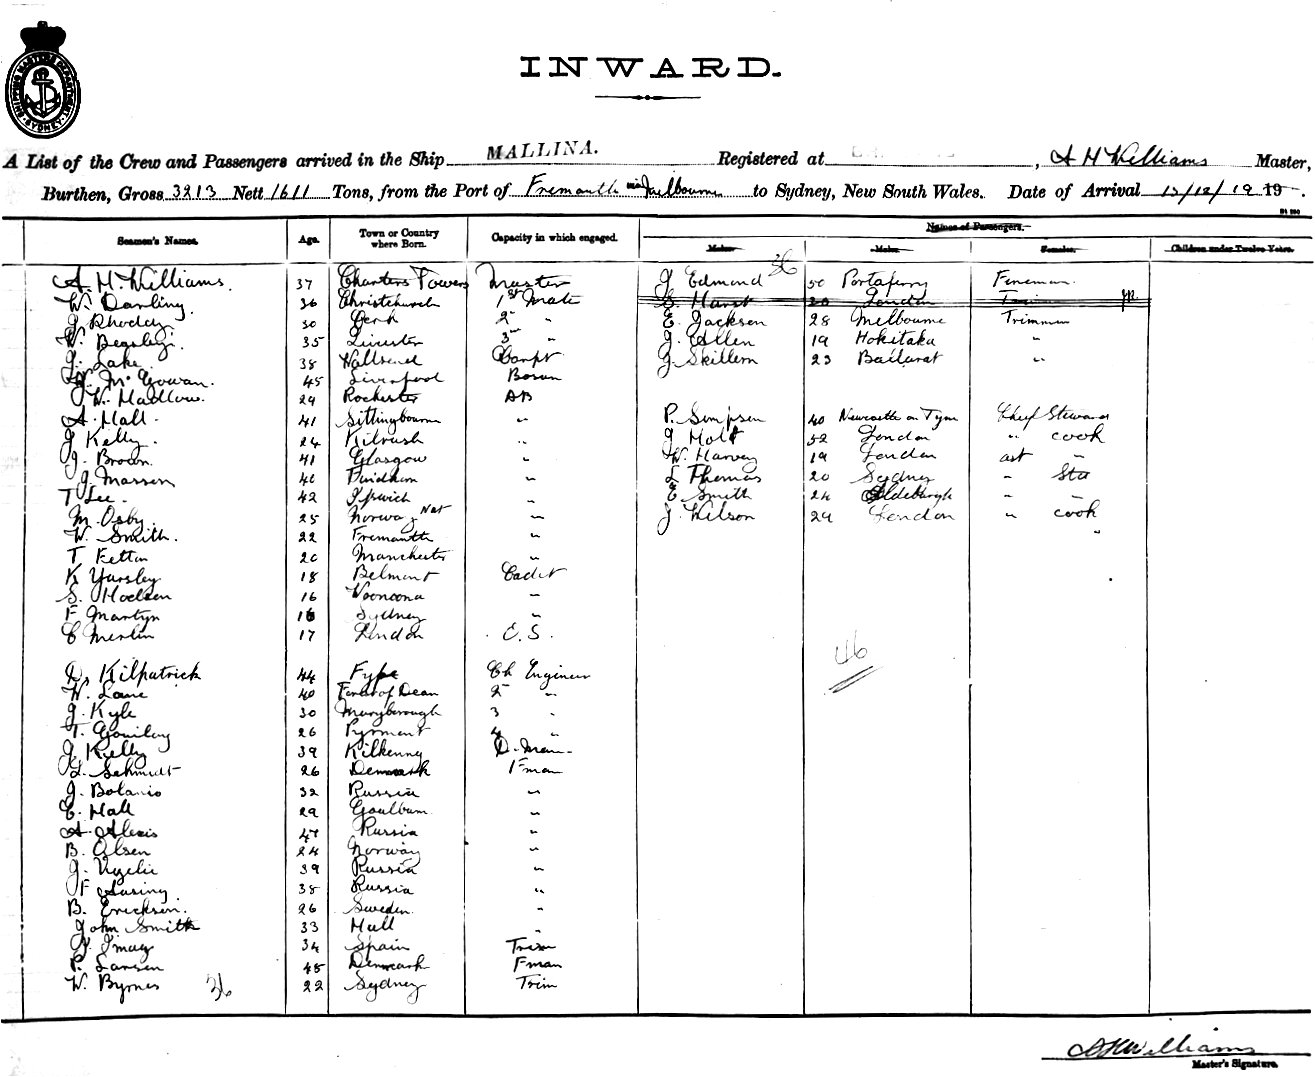 SHIPPING MASTER'S DEPARTMENT SYDNEY
INWARD.
A List of the Crew and Passengers arrived in the Ship MALLINA. Registered at , A H Williams Master,
Burthen, Gross 3213 Nett 1611 Tons, from the Port of Fremantle via Melbourne to Sydney, New South Wales. Date of Arrival 12/12/19 19 .
Seamen's Names. Age. Town or Country where Born. Capacity in which engaged. Names of Passengers. Males. Males. Females. Children under Twelve Years.
36
A. H. Williams. 37 Charters Towers Master J Edmond 50 Portaferry Fireman
W. Darling. 36 Christchurch 1st Mate S. Hurst 30 London
J. Rhoddy 30 2nd " E. Jackson 28 Melbourne Trimmer
W. Begsley. 35 Leicester 3rd " J. Allen 19 Hokitaka "
J. Lake. 38 Wallsend Carpt J Skillern 23 Ballarat "
J. McGowan. 45 Liverpool Bosun
W. Madlow. 29 Rochester AB
A. Hall. 41 Sittingbourne " P. Simpson 40 Newcastle on Tyne Chief Steward
J Kelly. 24 Kilrush " J Holt 52 London " cook
J. Brown. 41 Glasgow " W. Harvey 19 London asst "
J Masson 40 " L Thomas 20 Sydney " Std
T Lee. 42 Ipswich " E Smith 24 Aldeburgh " "
M. Osby. 25 Norway Nat " J. Wilson 29 London " cook
W. Smith. 22 Fremantle "
T Fetton 20 Manchester "
K Yarsley 18 Belmont Cadet
S. Hodson 16 Woonoona "
F Martyn 16 Sydney "
C Merlin 17 London O.S.
46
D. Kilpatrick 44 Fyfe Ch Engineer
W. Lane 40 Forest of Dean 2nd "
J. Kyle 30 Maryborough 3 "
T. Gourlay 26 Pyrmont 4 "
J Kelly 39 Kilkenny D. Man
L. Schmidt 26 Denmark Fman
J. Bolanio 32 Russia "
E. Hall 29 Goulburn "
A Alexis 47 Russia "
B. Olsen 24 Norway "
J. 39 Russia "
F 38 Russia "
B. Erickson. 26 Sweden "
John Smith 33 Hull "
J. Imay 34 Spain Trim
P. Larsen 45 Denmark Fman
W. Byrnes 36 22 Sydney Trim
A H Williams
Master's Signature.